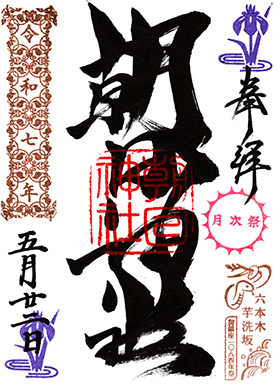 奉拝
月次祭
六本木
芋洗坂
朝日神社
朝日神社
令和七年
五月廿二日